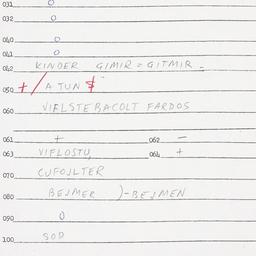 031 0
032 0
040 0
041 0
042 KINDER GIMIR = GITMIR -
050 + / A TUN $
060 VIFLSTEBACOLT FARDOS
061 + 062 -
063 VIFLOSTU 064 +
070 CUFOJLTER
080 BEJMER )-BEJMEN
090 0
100 SOD